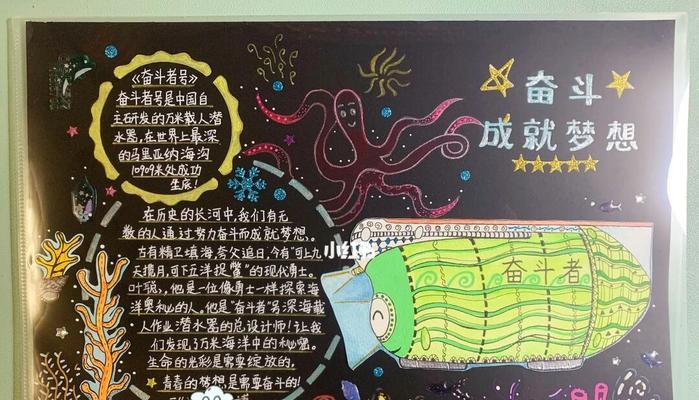 《奋斗者号》
奋斗者号是中国自
主石研发的万米载人潜
水器,在世界上最深
的马里亚纳海沟
10909米处成功
坐底!
奋斗
成就梦想
在历史的长河中,我们有无
数的人通过努力奋斗而成就梦想。
古有精卫填海,夸父追日,今有“可上九
天揽月,可下五洋捉鳖”的现代勇士。
叶聪,他是一位像勇士一样探索海
洋奥秘的人,他是“奋斗者号”深海载
人作业潜水器的总设计师!让我
们发现了万米海洋中的秘密。
生命的光彩是需要绽放的,
青春的梦想是需要奋斗的!
奋斗者
小红书